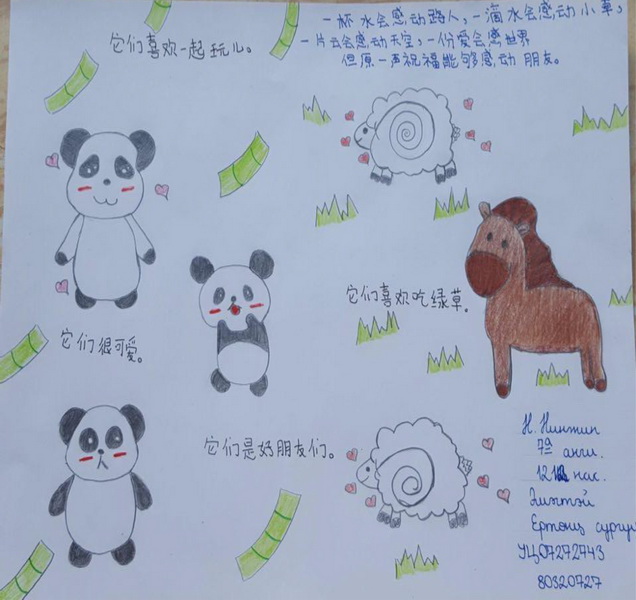 它们喜欢一起玩儿。
一杯水会感动路人,一滴水会感动小草,
一片云会感动天空,一份爱会感世界
但愿一声祝福能够感动朋友。
它们喜欢吃绿草.
它们很可爱。
它们是好朋友们。
Н. Нинжин
7а анги.
12 нас.
Ертөнц сургуу
УЦ07272743
80320727